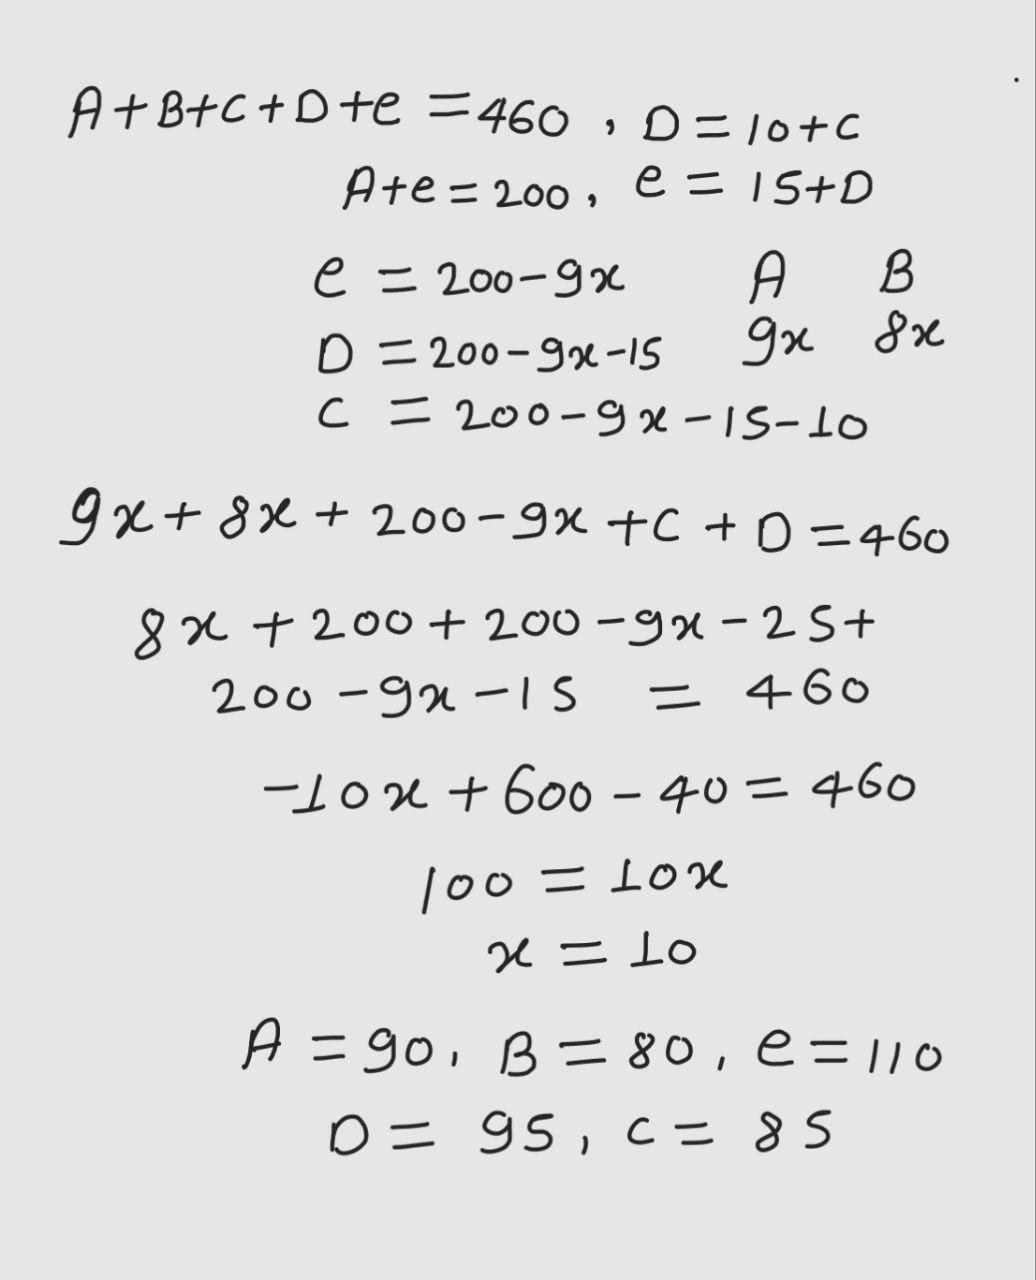 A+B+C+D+e = 460 , D = 10+C
A+e = 200 , e = 15+D
e = 200-9x A B
D = 200-9x-15 9x 8x
C = 200-9x-15-10
9x+8x+200-9x+C+D=460
8x+200+200-9x-25+
200-9x-15 = 460
-10x+600-40=460
100 = 10x
x = 10
A = 90, B = 80, e = 110
D = 95, C = 85